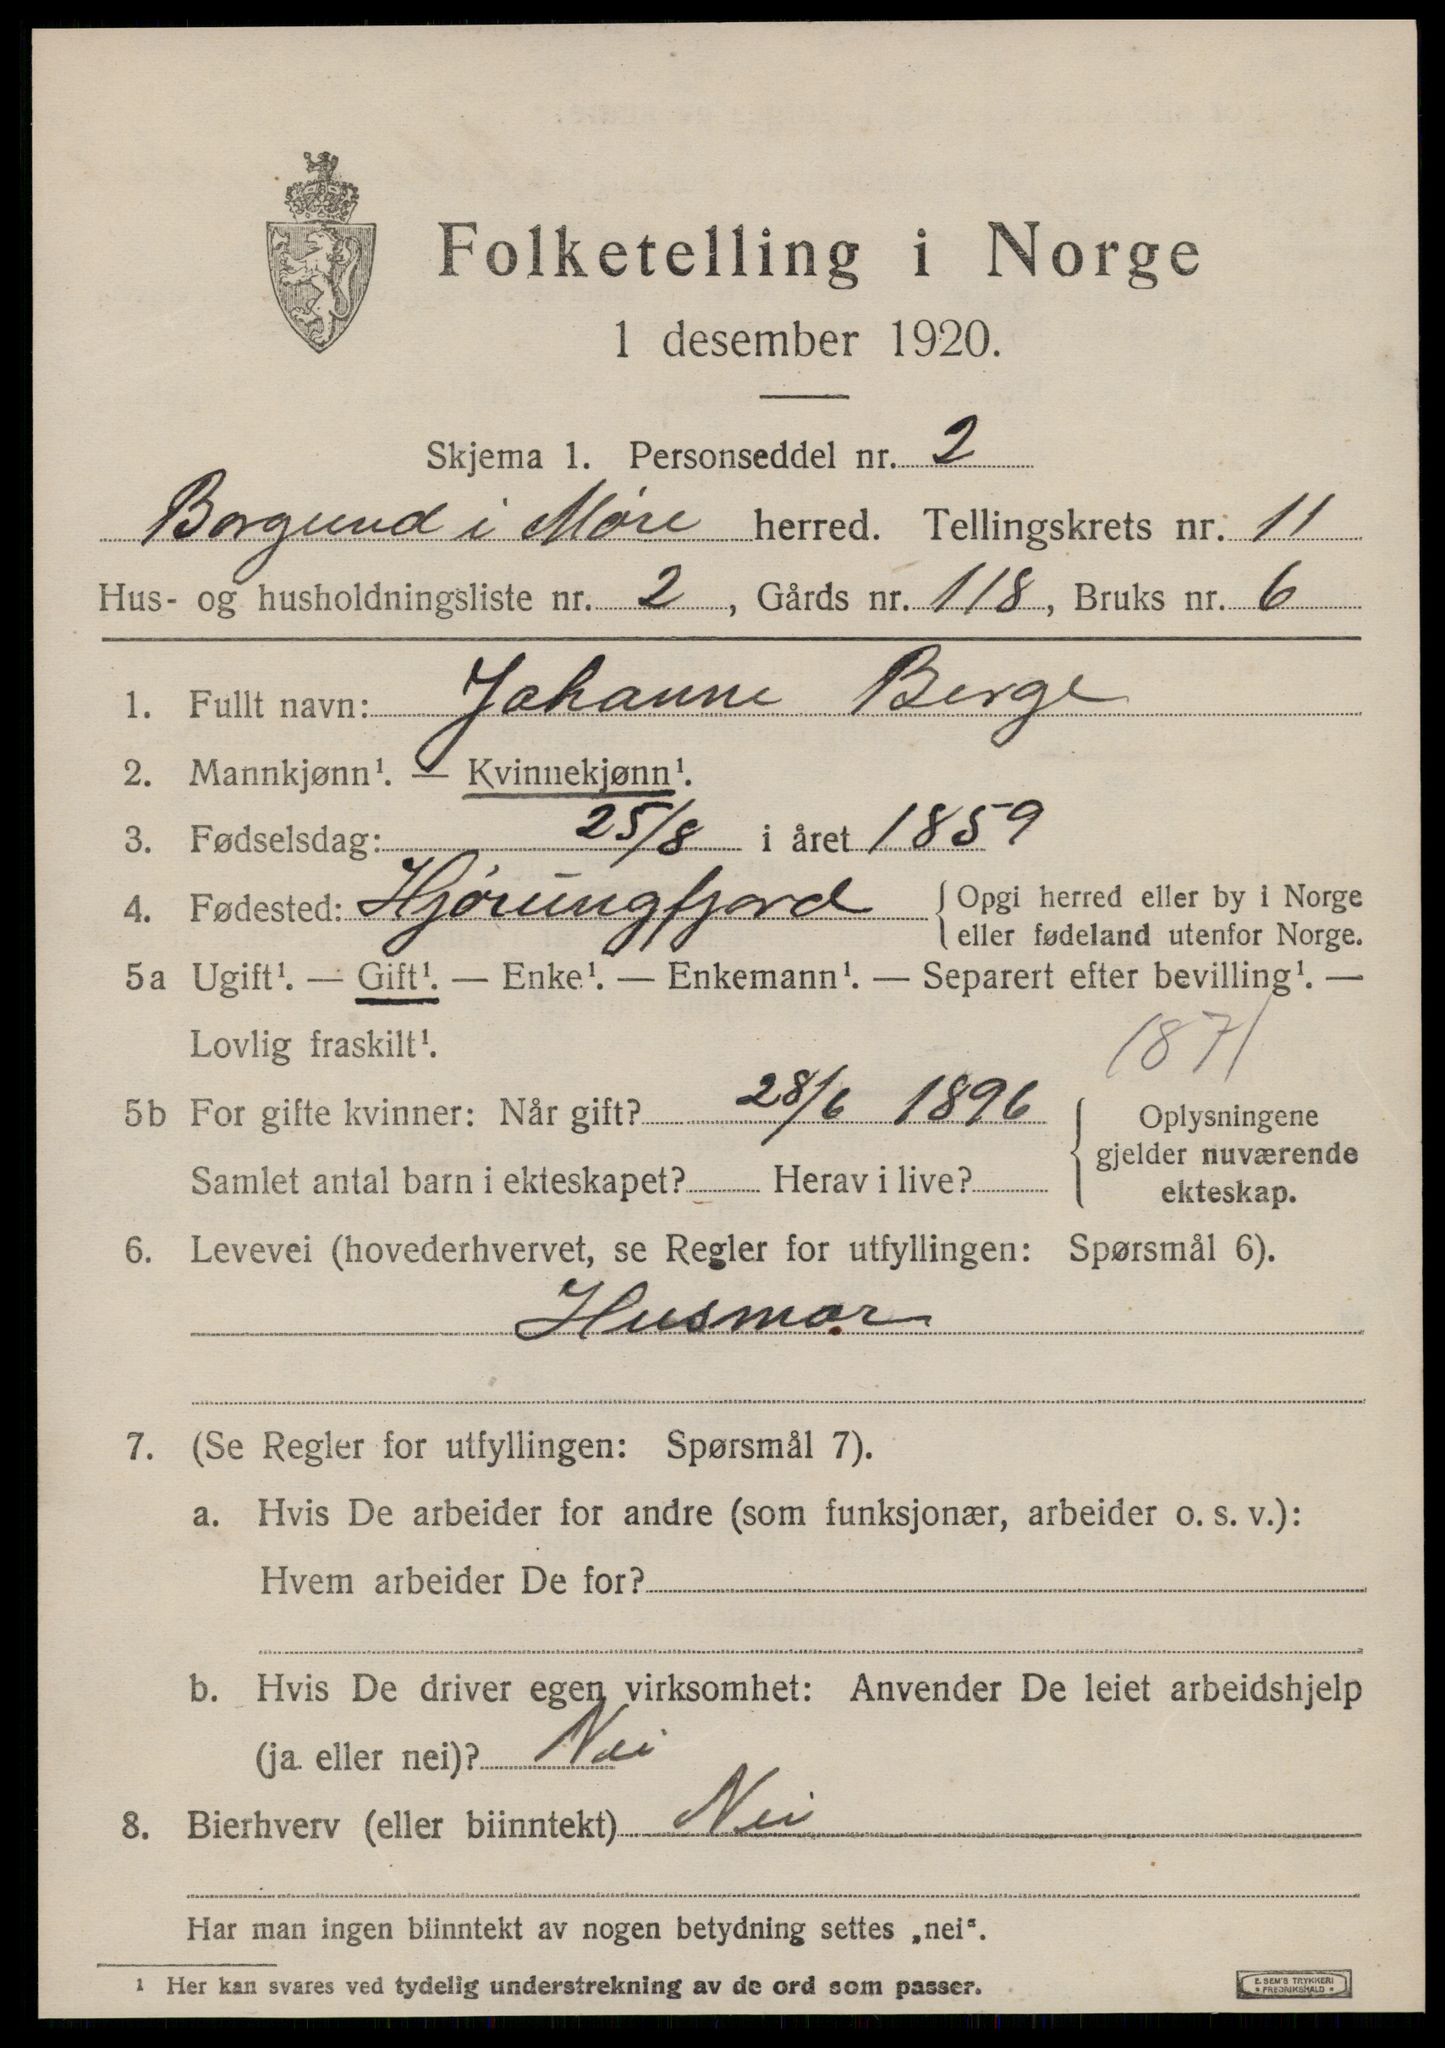 Folketelling i Norge
1 desember 1920.
Skjema 1. Personseddel nr. 2
Borgund i Møre herred. Tellingskrets nr. 11
Hus- og husholdningsliste nr. 2, Gårds nr. 118, Bruks nr. 6
1. Fullt navn: Johanne Berge
2. Mannkjønn¹. — Kvinnekjønn¹.
3. Fødselsdag: 25/8 i året 1859
4. Fødested: Hjørungfjord { Opgi herred eller by i Norge
eller fødeland utenfor Norge.
5a Ugift¹. — Gift¹. — Enke¹. — Enkemann¹. — Separert efter bevilling¹. —
Lovlig fraskilt¹.
1871
5b For gifte kvinner: Når gift? 28/6 1896 { Oplysningene
gjelder nuværende
Samlet antal barn i ekteskapet? Herav i live? ekteskap.
6. Levevei (hovederhvervet, se Regler for utfyllingen: Spørsmål 6).
Husmor
7. (Se Regler for utfyllingen: Spørsmål 7).
a. Hvis De arbeider for andre (som funksjonær, arbeider o. s. v.):
Hvem arbeider De for?
b. Hvis De driver egen virksomhet: Anvender De leiet arbeidshjelp
(ja eller nei)? Nei
8. Bierhverv (eller biinntekt) Nei
Har man ingen biinntekt av nogen betydning settes „nei“.
¹ Her kan svares ved tydelig understrekning av de ord som passer.
E. SEM'S TRYKKERI
* FREDRIKSHALD *